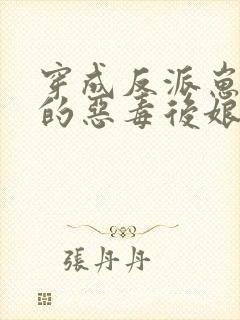 穿成反派崽
的惡毒後娘
張丹丹